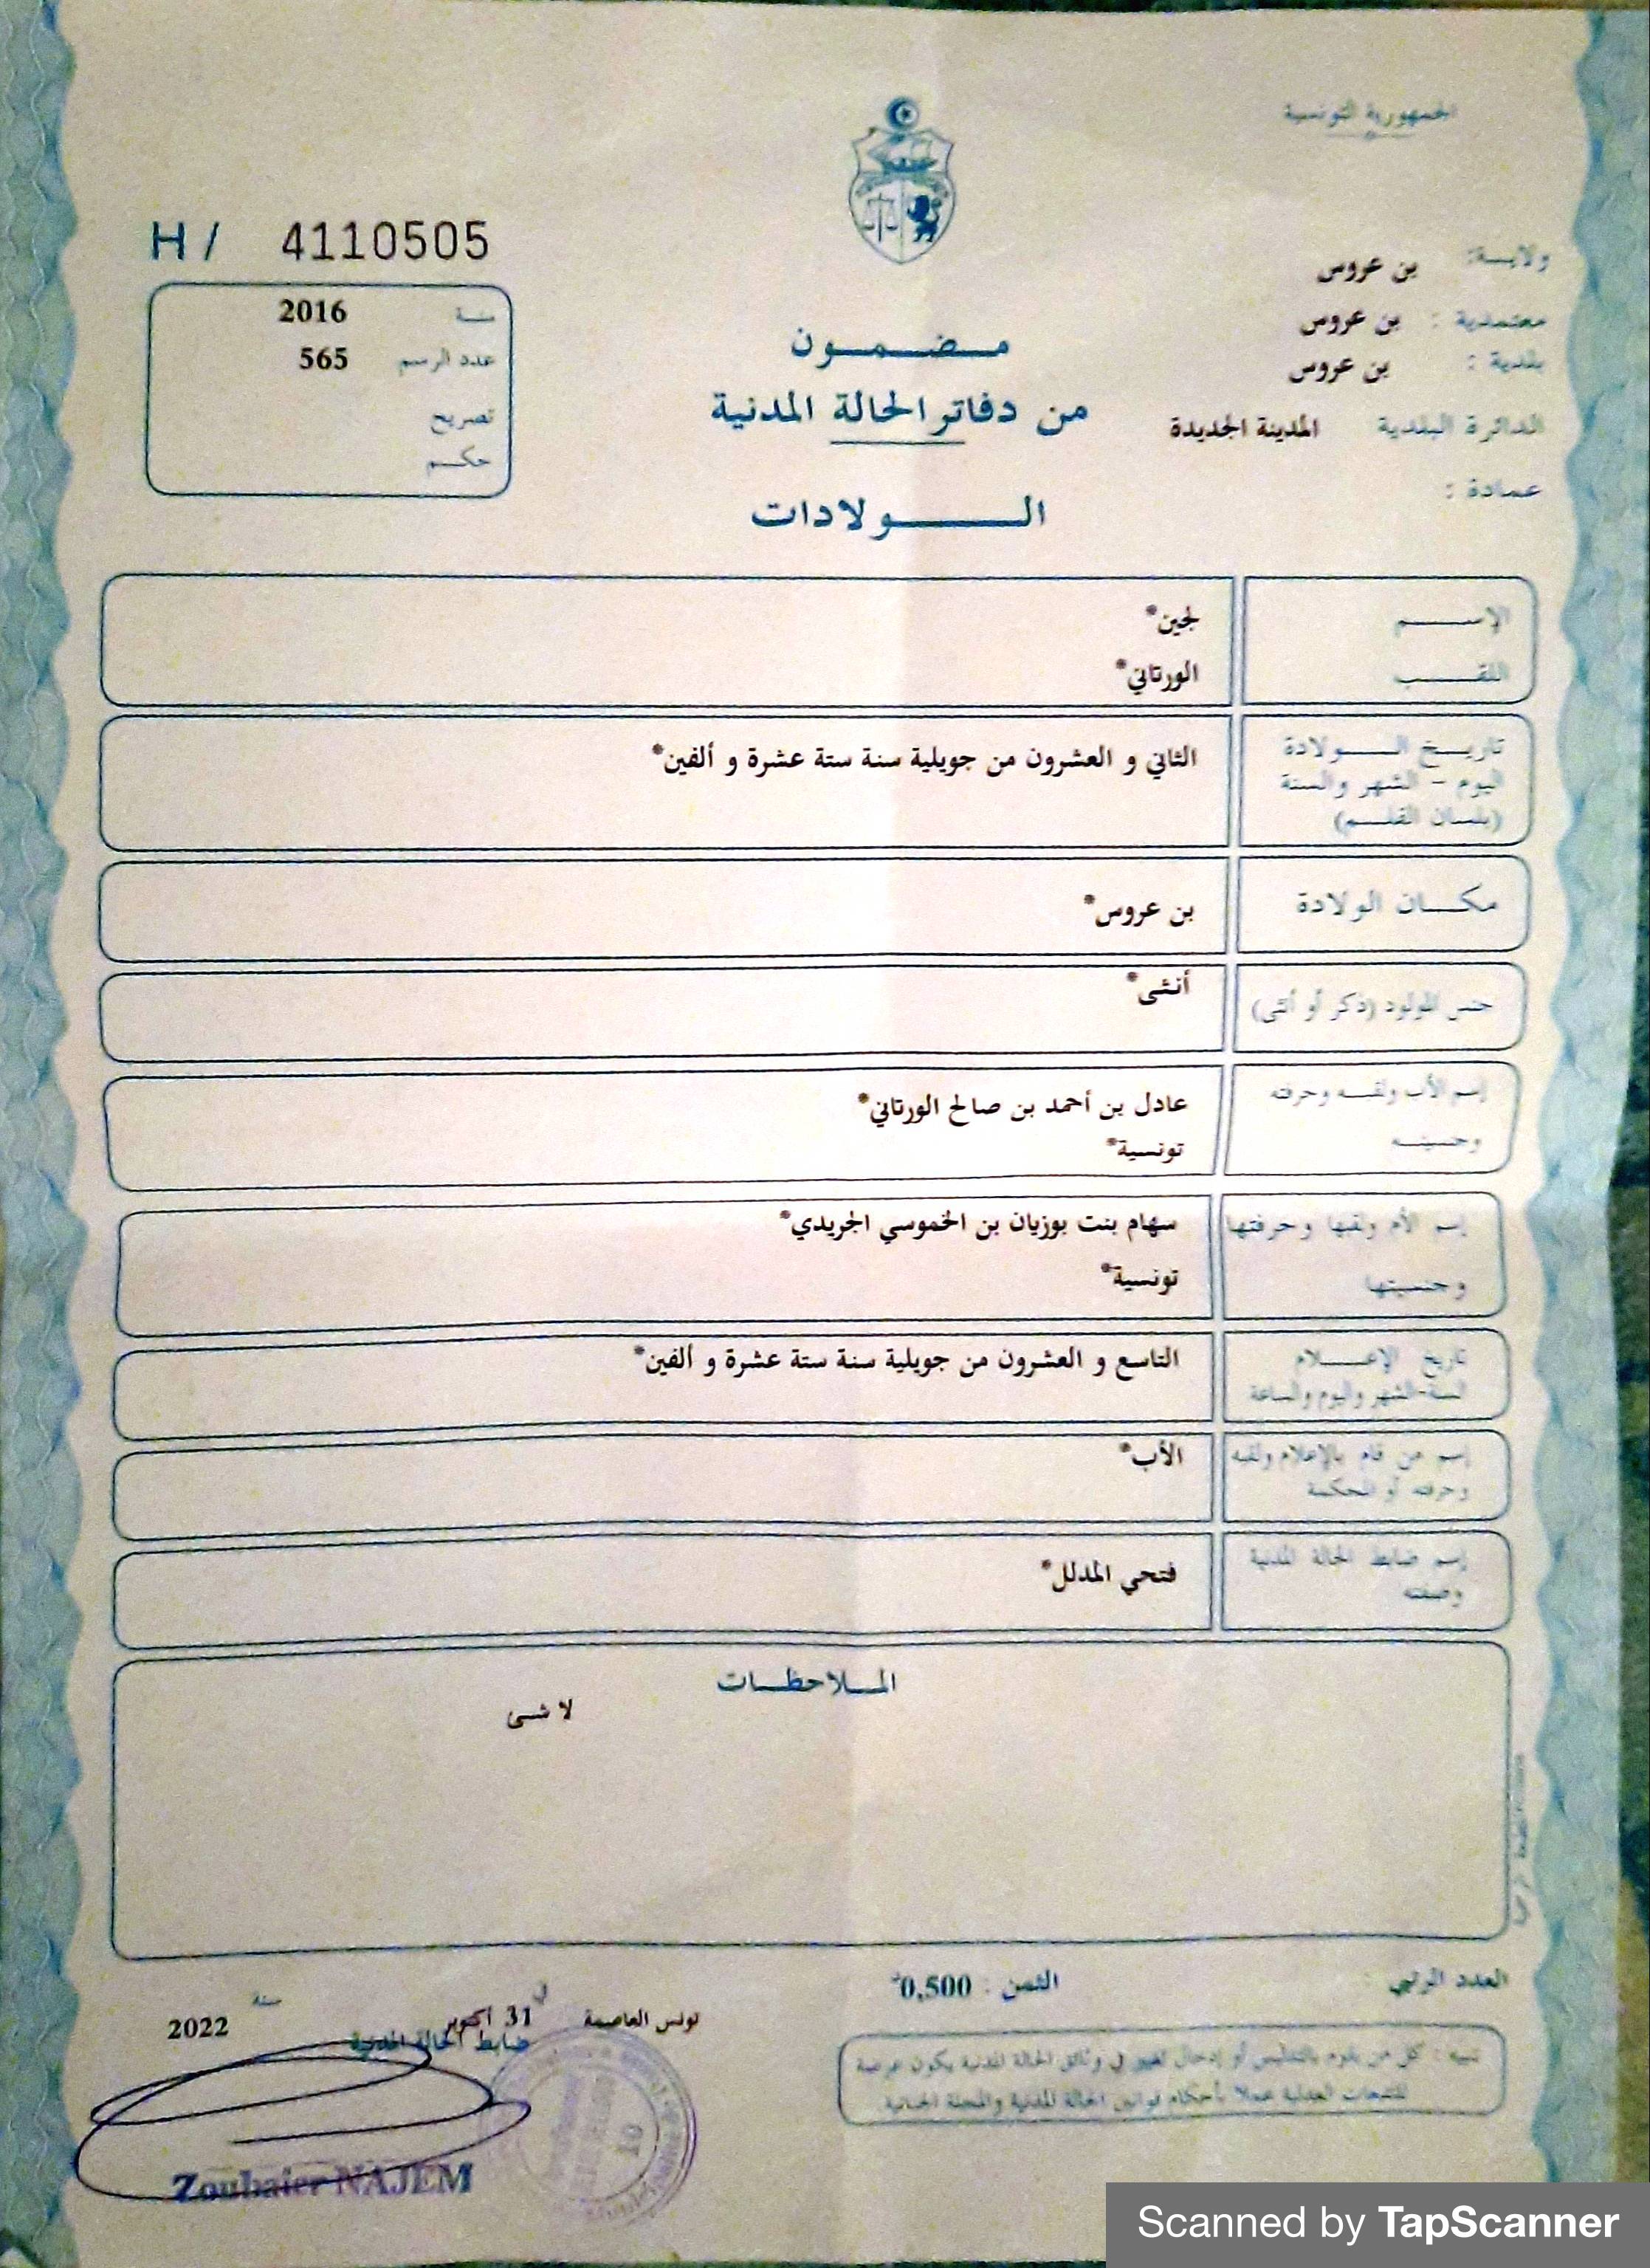 الجمهورية التونسية
H / 4110505
ولايـــة: بن عروس
معتمدية : بن عروس
بلدية : بن عروس
الدائرة البلدية المدينة الجديدة
عمادة :
سنـــة 2016
عدد الرسم 565
تصريح
حكـــم
مـــضـــمـــون
من دفاتر الحالة المدنية
الـــــولادات
الإســـــم لجين*
اللقـــــب الورتاني*
تاريـــخ الـــــولادة
اليوم - الشهر والسنة
(بلسان القلـــم)
الثاني و العشرون من جويلية سنة ستة عشرة و ألفين*
مكـــان الولادة بن عروس*
جنس المولود (ذكر أو أنثى) أنثى*
إسم الأب ولقبـــه وحرفته عادل بن أحمد بن صالح الورتاني*
وجنسيتـــه تونسية*
إسم الأم ولقبها وحرفتها سهام بنت بوزيان بن الخموسي الجريدي*
وجنسيتها تونسية*
تاريخ الإعـــــلام
السنة-الشهر واليوم والساعة
التاسع و العشرون من جويلية سنة ستة عشرة و ألفين*
إسم من قام بالإعلام ولقبه
وحرفته أو المحكمة
الأب*
إسم ضابط الحالة المدنية
وصفته
فتحي المدلل*
المـــلاحظـــات
لا شـــئ
العدد الرتبي :
الثمن : 0,500د
تونس العاصمة في 31 اكتوبر سنة 2022
ضابط الحالة المدنية
تنبيه : كل من يقوم بالتدليس أو إدخال تغيير في وثائق الحالة المدنية يكون عرضة
للتتبعات العدلية عملا بأحكام قوانين الحالة المدنية والمجلة الجنائية
10
Zoubaier NAJEM
Scanned by TapScanner